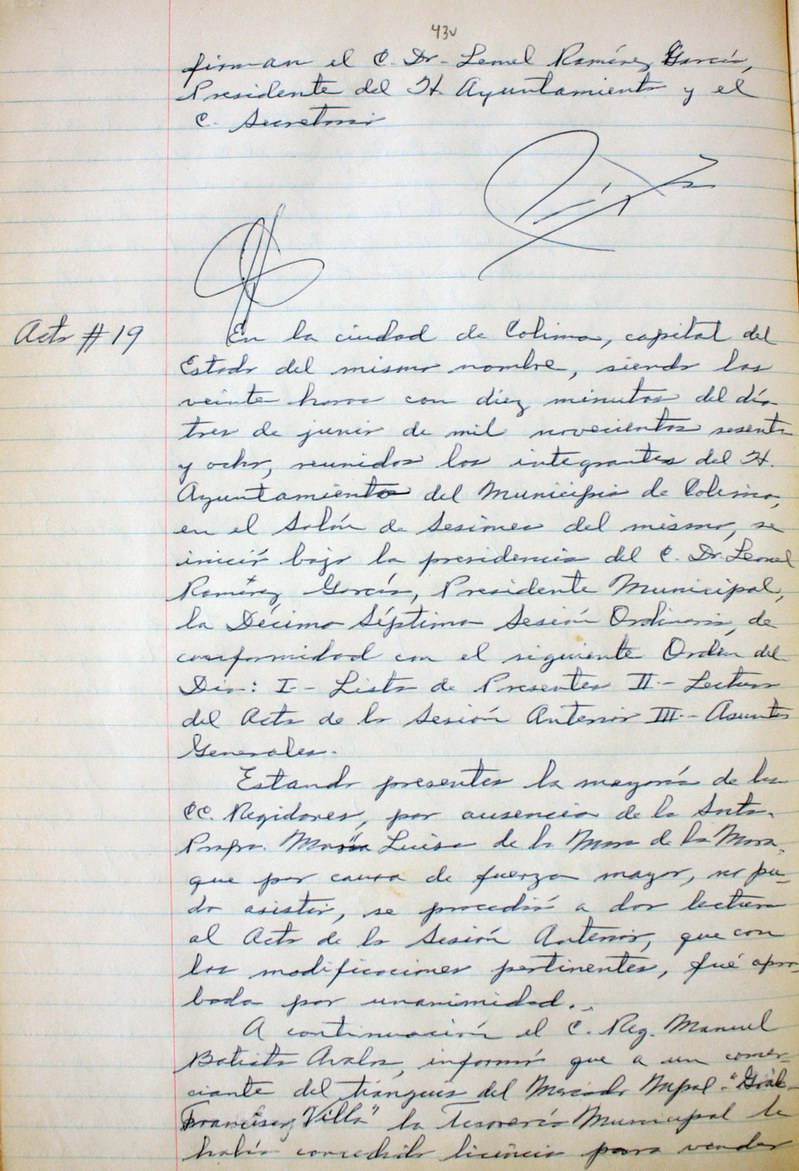 43v
firman el C. Dr. Leonel Ramírez García,
Presidente del H. Ayuntamiento y el
C. Secretario
Acta # 19
En la ciudad de Colima, capital del
Estado del mismo nombre, siendo las
veinte horas con diez minutos del día
tres de junio de mil novecientos sesenta
y ocho, reunidos los integrantes del H.
Ayuntamiento del Municipio de Colima,
en el Salón de Sesiones del mismo, se
inició bajo la presidencia del C. Dr. Leonel
Ramírez García, Presidente Municipal,
la Décima Séptima Sesión Ordinaria, de
conformidad con el siguiente Orden del
Día: I.- Lista de Presentes II.- Lectura
del Acta de la Sesión Anterior III.- Asuntos
Generales.
Estando presentes la mayoría de los
CC. Regidores, por ausencia de la Srita.
Profra. María Luisa de la Mora de la Mora,
que por causa de fuerza mayor, no pu-
do asistir, se procedió a dar lectura
al Acta de la Sesión Anterior, que con
las modificaciones pertinentes, fué apro-
bada por unanimidad.
A continuación el C. Reg. Manuel
Batista Avalos, informó que a un comer-
ciante del tianguis del Mercado Mpal. "Gral.
Francisco Villa" la Tesorería Municipal le
había concedido licencia para vender